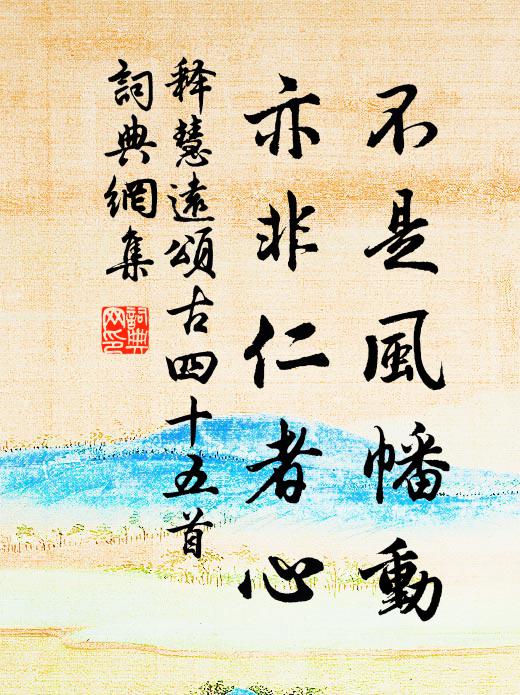 不是風幡動
亦非仁者心
释慧遠頌古四十五首
詞典網集
詞典
网印